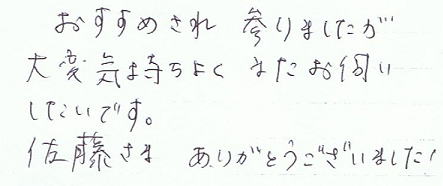 おすすめされ 参りましたが
大変気持ちよく またお伺い
したいです。
佐藤さま ありがとうございました!